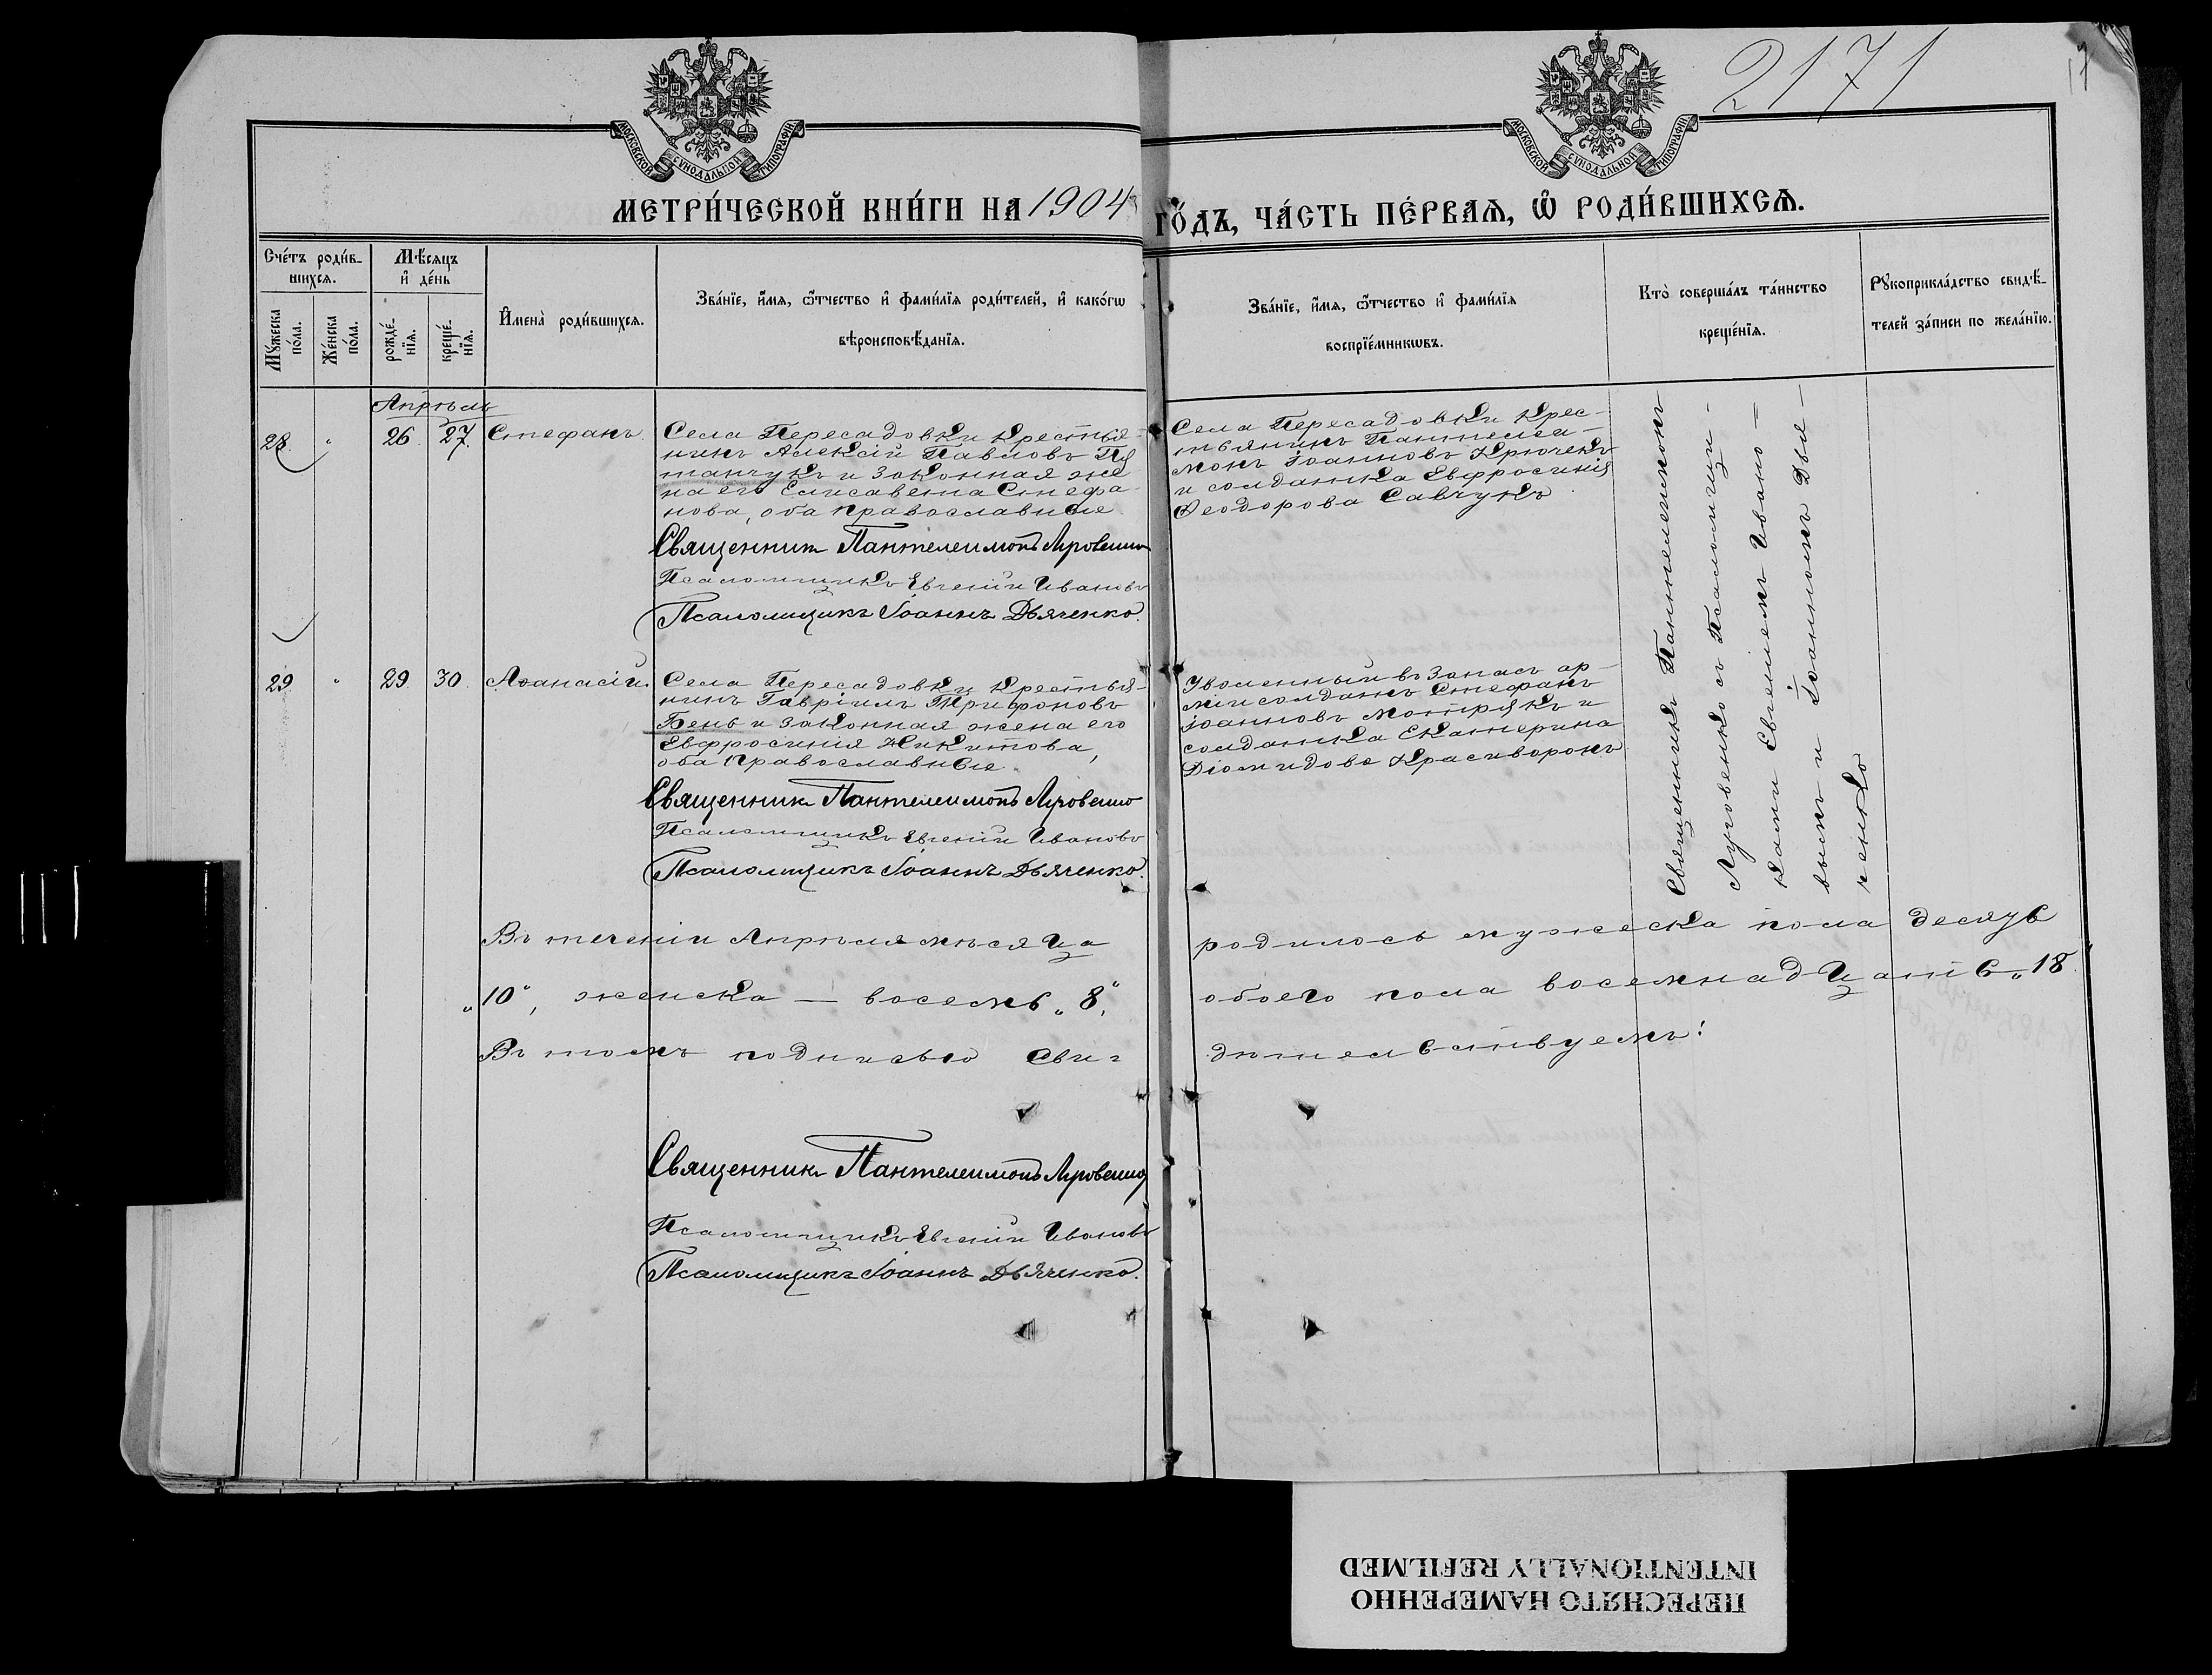 2171
17
МОСКОВСКОЙ СѴНОДАЛЬНОЙ ТИПОГРАФІИ
МОСКОВСКОЙ СѴНОДАЛЬНОЙ ТИПОГРАФІИ
МЕТРИ́ЧЕСКОЙ КНИ́ГИ НА 1904 ГО́ДЪ, ЧА́СТЬ ПЕ́РВАѦ, Ѡ҆ РОДИ́ВШИХСѦ.
Сче́тъ роди́в-
шихсѧ.
Мꙋ́жеска
по́ла.
Же́нска
по́ла.
Мѣ́сѧцъ
и҆ де́нь
рожде́-
нїѧ.
креще́-
нїѧ.
И҆мена̀ роди́вшихсѧ.
Зва́нїе, и҆́мѧ, ѻ҆́тчество и҆ фами́лїѧ роди́телей, и҆ како́гѡ
вѣроисповѣ́данїѧ.
Зва́нїе, и҆́мѧ, ѻ҆́тчество и҆ фами́лїѧ
воспрїе́мникѡвъ.
Кто̀ соверша́лъ та́инство
креще́нїѧ.
Рꙋкоприкла́дство свидѣ́-
телей за́писи по жела́нїю.
Апрѣль
28 " 26 27 Стефанъ
Села Пересадовки крестья-
нинъ Алексій Павловъ Пу
танчукъ и законная же
на его Елисавета Стефа
нова, оба православные
Священникъ Пантелеимонъ Луговенко
Псаломщикъ Евгеній Ивановъ
Псаломщикъ Іоаннъ Дьяченко.
Села Пересадовки крес-
тьянинъ Пантелеи-
монъ Іоанновъ Крючекъ
и солдатка Евфросинія
Ѳеодорова Савчукъ
29 " 29 30 Аѳанасій
Села Пересадовки крестья-
нинъ Гавріилъ Трифоновъ
Бень и законная жена его
Евфросинія Никитова,
оба православные
Священникъ Пантелеимонъ Луговенко
Псаломщикъ Евгеній Ивановъ
Псаломщикъ Іоаннъ Дьяченко.
Уволенный въ запасъ ар-
міи солдатъ Стефанъ
Іоанновъ Мотрукъ и
солдатка Екатерина
Діомидова Красиворонъ
Священникъ Пантелеимонъ
Луговенко съ Псаломщи-
ками Евгеніемъ Ивано-
вымъ и Іоанномъ Дья-
ченко
Въ теченіи Апрѣля мѣсяца родилось мужеска пола десять
"10", женска — восемь "8", обоего пола восемнадцать "18
Въ томъ подписью сви- дѣтельствуемъ:
Священникъ Пантелеимонъ Луговенко
Псаломщикъ Евгеній Ивановъ
Псаломщикъ Іоаннъ Дьяченко.
ПЕРЕСНЯТО НАМЕРЕННО
INTENTIONALLY REFILMED